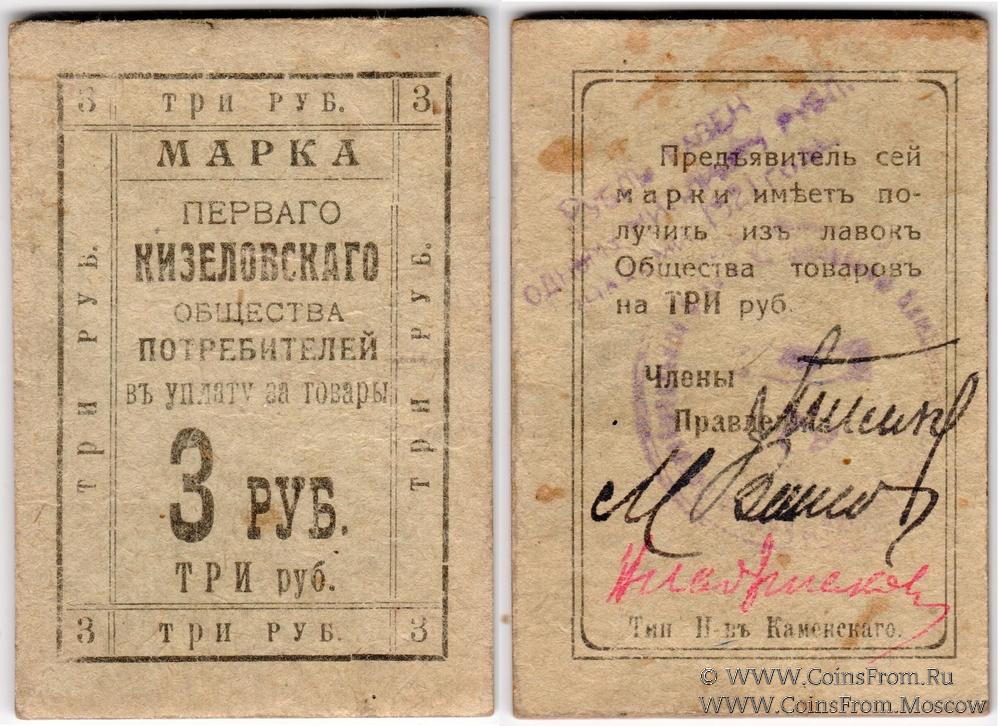 3 ТРИ РУБ. 3
МАРКА
ПЕРВАГО
КИЗЕЛОВСКАГО
ОБЩЕСТВА
ПОТРЕБИТЕЛЕЙ
въ уплату за товары
3 РУБ.
ТРИ руб.
ТРИ РУБ.
ТРИ РУБ.
3 ТРИ РУБ. 3
Предъявитель сей
марки имѣетъ по-
лучить изъ лавокъ
Общества товаровъ
на ТРИ руб.
Члены
Правления
М
Тип Н-въ Каменскаго.
© WWW.CoinsFrom.Ru
WWW.CoinsFrom.Moscow